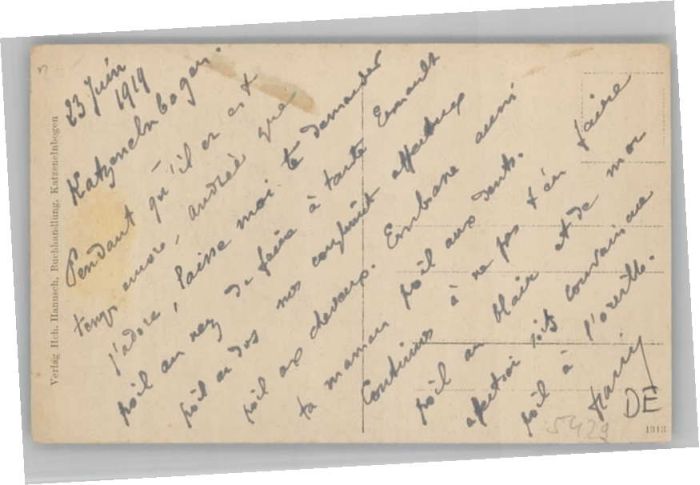 23 Juin
1919
Katzenelnbogen.
Pendant qu'il en est
temps encore, andrée que
j'adore, laisse moi te demander
poil au nez de faire à tante Ernault
poil au dos nos compliments affectueux
poil aux cheveux. Embrasse aussi
ta maman poil aux dents.
Continue à ne pas t'en faire
poil au blair et de mon
affection sois convaincue
poil à l'oreille.
Harry
DE
5429
1313
Verlag Hch. Hannsch, Buchhandlung, Katzenelnbogen